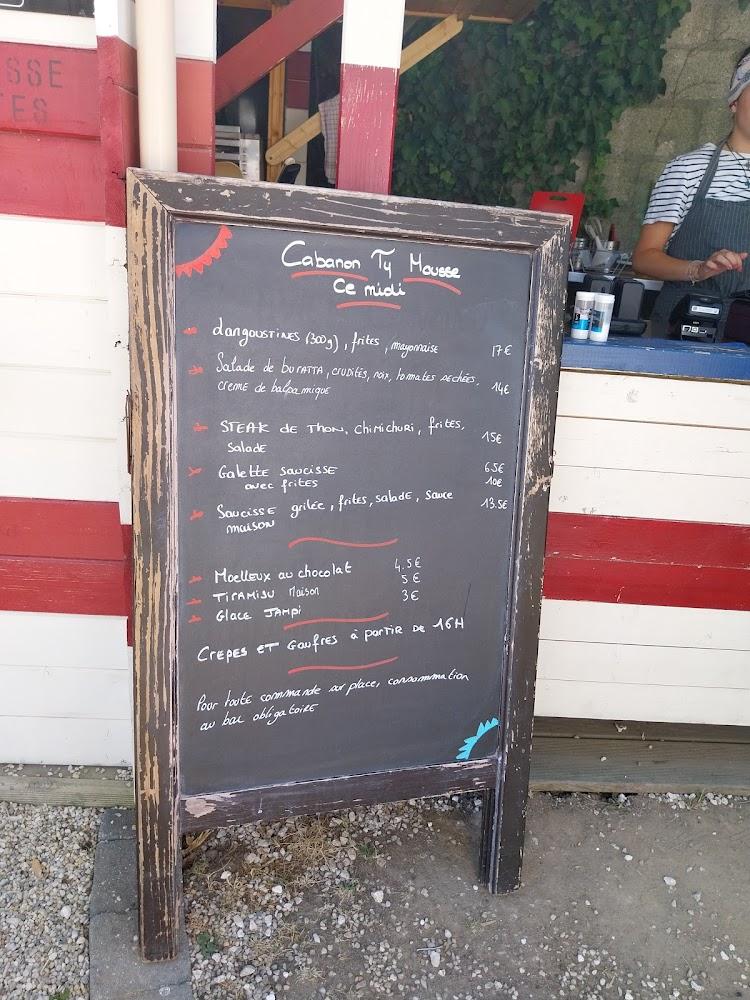 SSE
ES
Cabanon Ty Mousse
Ce midi
dangoustines (300g), frites, mayonnaise 17€
Salade de buratta, crudités, noix, tomates sechées,
creme de balsamique 14€
STEAK de Thon, chimichuri, frites,
salade 15€
Galette saucisse 6.5€
avec frites 10€
Saucisse grilée, frites, salade, sauce
maison 13.5€
Moelleux au chocolat 4.5€
Tiramisu Maison 5€
Glace JAMPi 3€
Crepes et Gaufres à partir de 16H
Pour toute commande sur place, consommation
au bar obligatoire